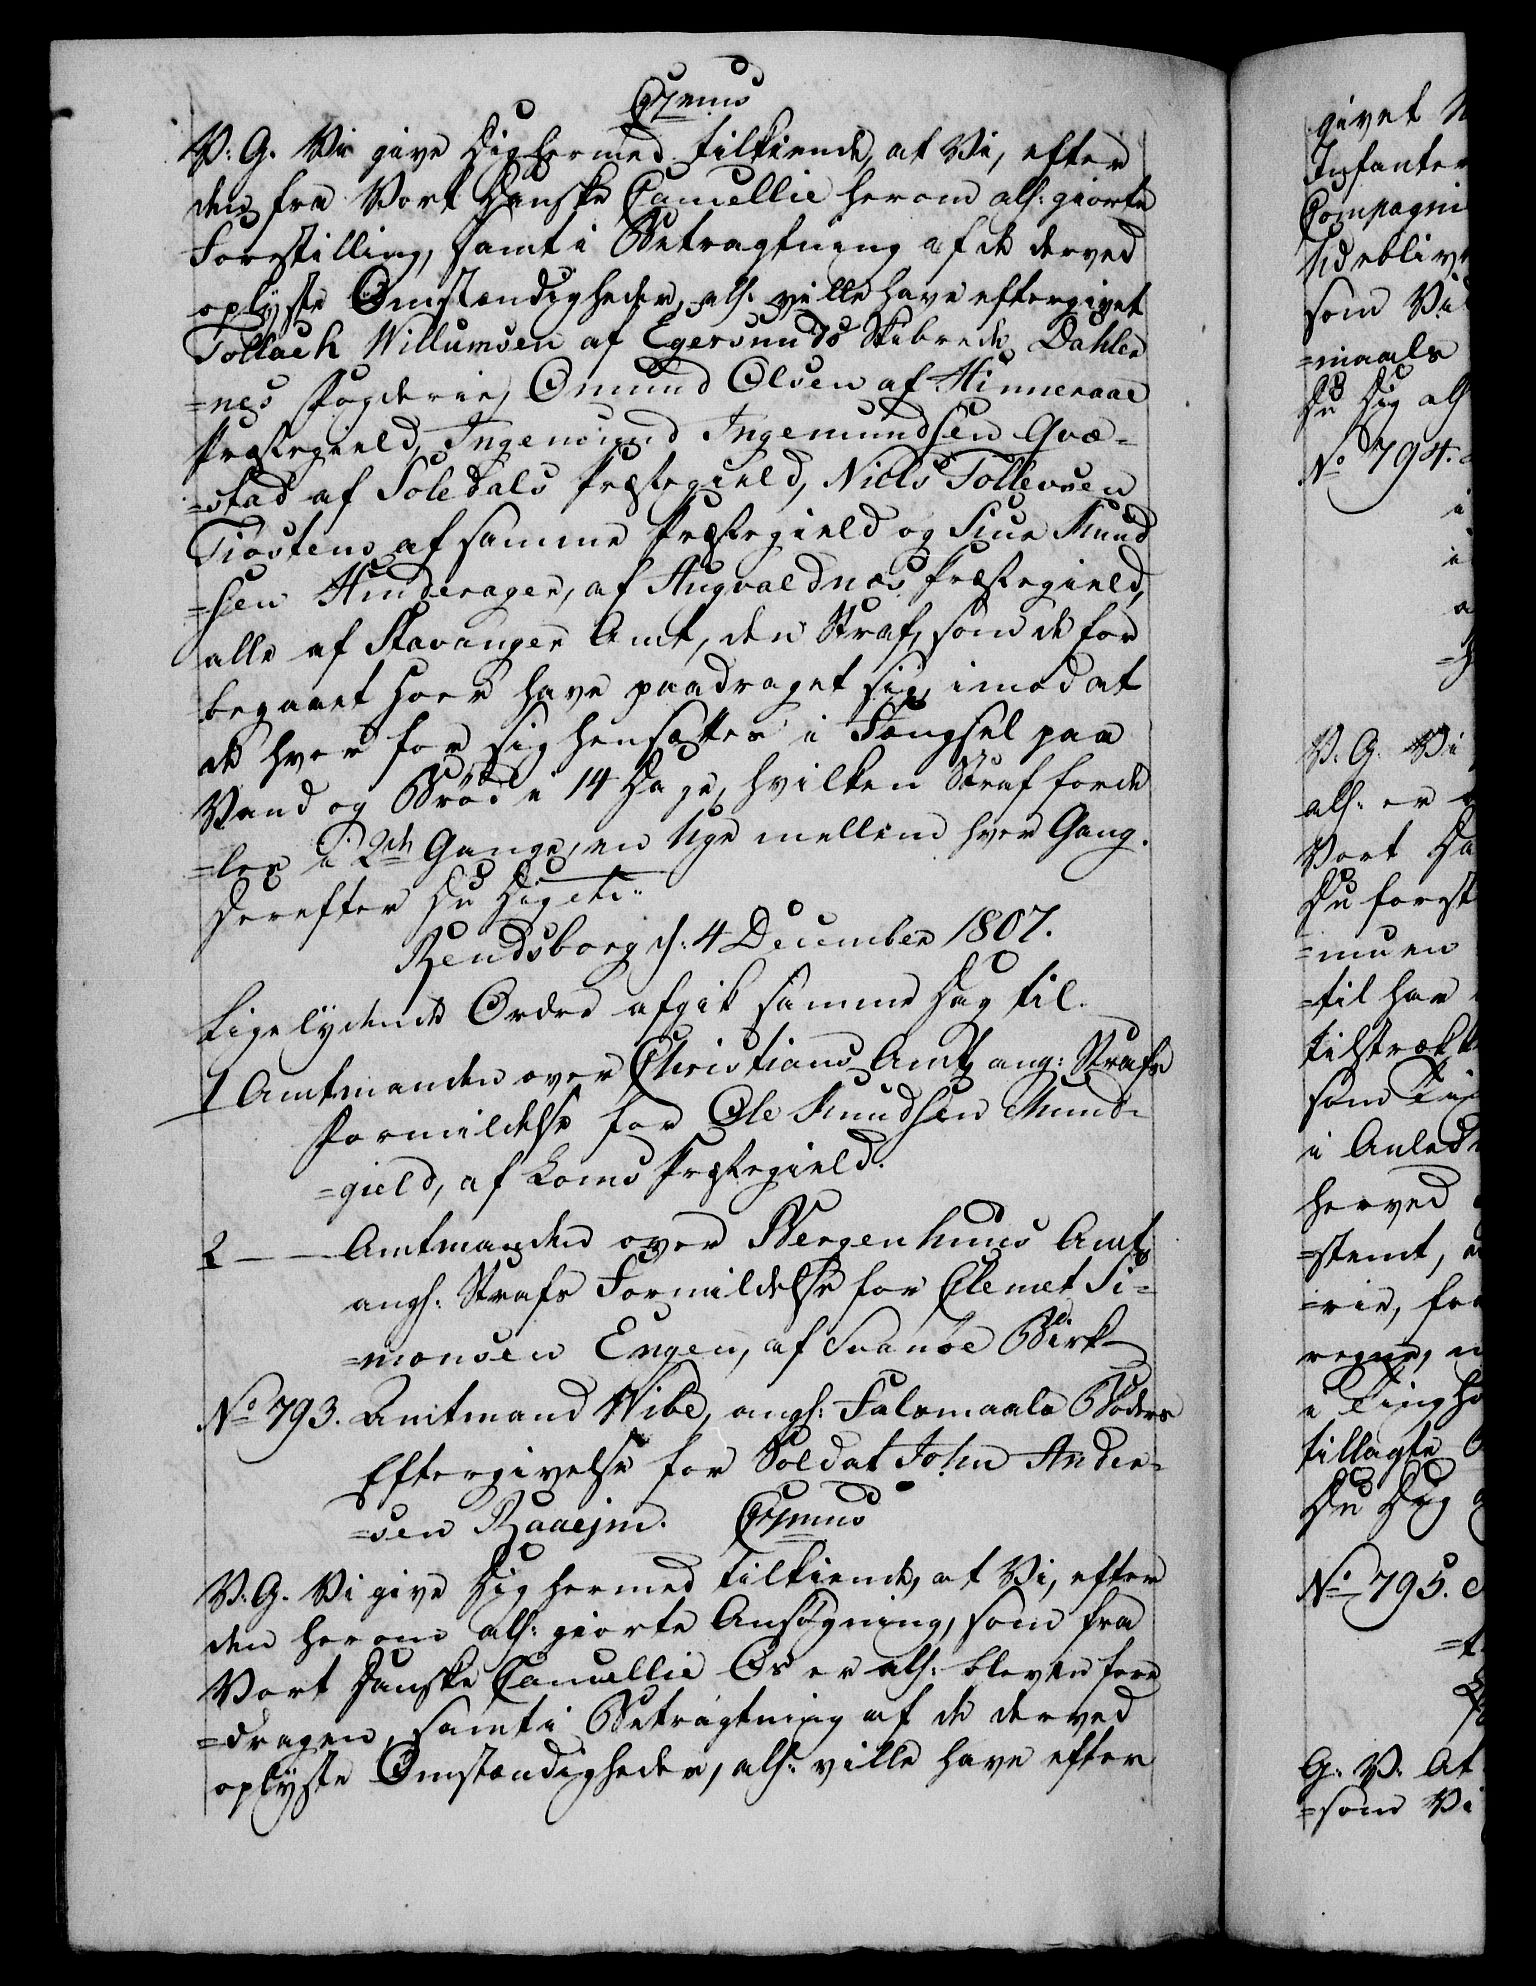 C7mus
V: G. Vi give Dig hermed tilkiende, at Vi, efter
den fra Vort Danske Cancellie herom allh: giorte
Forestilling, samt i Betragtning af de derved
oplyste Omstændigheder, allh. ville have eftergivet
Tollach Willumsen af Egersunds Skibrede, Dahler
=nes Fogderie, Omund Olsen af Hinneraae
Præstegield, Ingemund Ingemundsen Qvæ=
=stad af Soledals Præstegield, Niels Tollevsen
Tiostens af samme Præstegield og Siur Knud
=sen Hinderager, af Augvaldnæs Præstegield,
alle af Stavanger Amt, den Straf, som de for
begaaet Hoer have paadraget sig, imod at
de hver for sig hensættes i Fængsel paa
Vand og Brød i 14 Dage, hvilken Straf forde
=les i 2de Gange, en Uge mellem hver Gang.
Derefter Du Dig etc:
Rendsborg d: 4 December 1807.
Ligelydende Ordre afgik samme Dag til.
1 Amtmanden over Christians Amt, ang: Strafs
Formildelse for Ole Knudsen Mund=
=gield, af Loms Præstegield.
2 — Amtmanden over Bergenhuus Amt,
angh: Strafs Formildelse for Clemet Si=
=monsen Engen, af Svanøe Birk
No 793. Amtmand Wibe, angh: Falsmaals Bøders
Eftergivelse for Soldat John Ander=
=sen Raaejm. C7mus
V. G. Vi give Dig hermed tilkiende, at Vi, efter
den herom allh: giorte Ansøgning, som fra
Vort Danske Cancellie Os er allh: bleven fore
=dragen, samt i Betragtning af de derved
oplyste Omstændigheder, allh: ville have efter
givet
Infanter
Compagni
Udebliv
som Vi
=maals
Du Dig allh
No 794.
V. G. Vi
allh: er
Vort Da
Du forest
=muen
=til har
tilstrækk
som
i Anled
herved
=stemt,
=rie, for
regne,
i Tingh
tillagte
Du Dig
No 795.
G. V. At
=som Vi